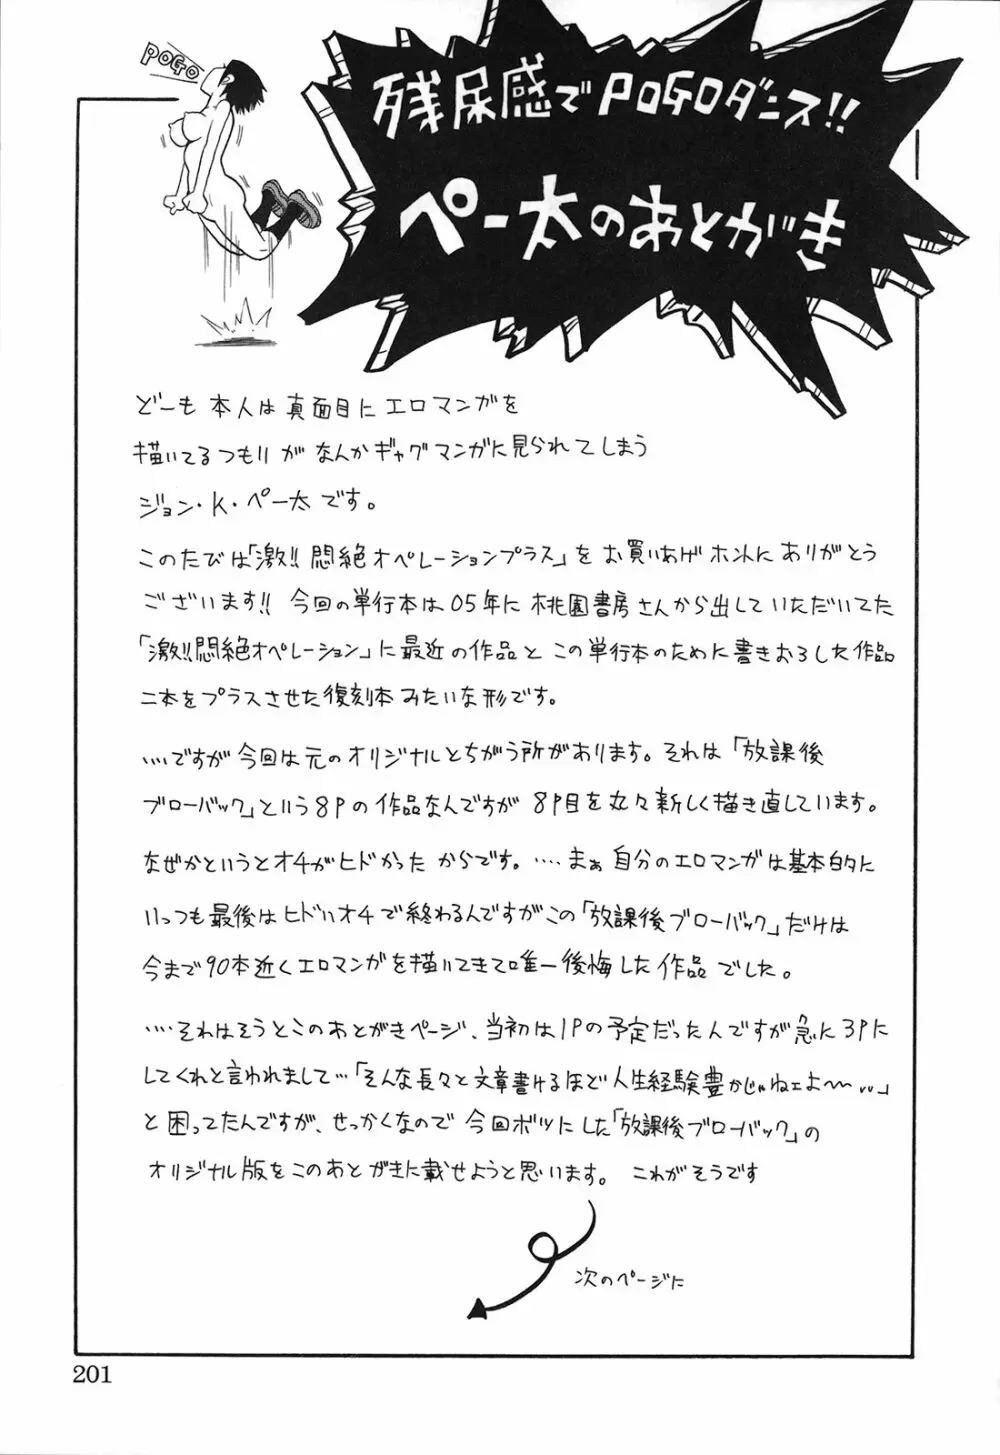 POGO
残尿感でPOGOダンス!!
ペー太のあとがき
どーも 本人は真面目にエロマンガを
描いてるつもりが なんかギャグマンガに見られてしまう
ジョン・K・ペー太です。
このたびは「激!!悶絶オペレーションプラス」を お買いあげ ホントに ありがとう
ございます!! 今回の単行本は 05年に 桃園書房さんから出していただいてた
「激!!悶絶オペレーション」に最近の作品と この単行本のために書きおろした作品
二本をプラスさせた復刻本みたいな形です。
....ですが今回は元のオリジナルとちがう所があります。それは「放課後
ブローバック」という8Pの作品なんですが 8P目を丸々新しく描き直しています。
なぜかというとオチがヒドかった からです。....まぁ 自分のエロマンガは基本的に
いっつも最後はヒドいオチで終わるんですがこの「放課後ブローバック」だけは
今まで90本近くエロマンガを描いてきて唯一後悔した作品でした。
....それはそうとこのあとがきページ、当初は1Pの予定だったんですが急に3Pに
してくれと言われまして...「そんな長々と文章書けるほど人生経験豊かじゃねェよ〜...」
と困ってたんですが、せっかくなので今回ボツにした「放課後ブローバック」の
オリジナル版をこのあとがきに載せようと思います。 これがそうです
次のページに
201